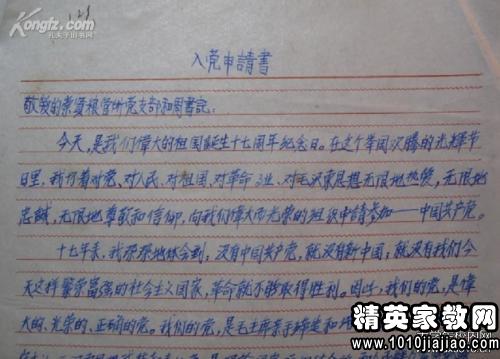 Kongfz.com
入党申請書
敬爱的党支部和周書記:
今天,是我们偉大的祖国誕生十七周年纪念日。在这个举国欢腾的光輝节
日里,我怀着对党、对人民、对祖国、对革命事业、对毛沢東思想无限地热爱,无限地
忠誠,无限地尊敬和信仰,向我们偉大而光荣的组织申請参加——中国共产党。
十七年来,我深深地体会到:没有中国共产党,就没有新中国;就没有我们今
天这样繁荣富强的社会主义国家,革命就不能取得胜利。因此,我们的党,是偉
大的、光荣的、正确的党。我们的党,是毛主席亲手缔造和
精英家教网
www.1010jiajiao.com